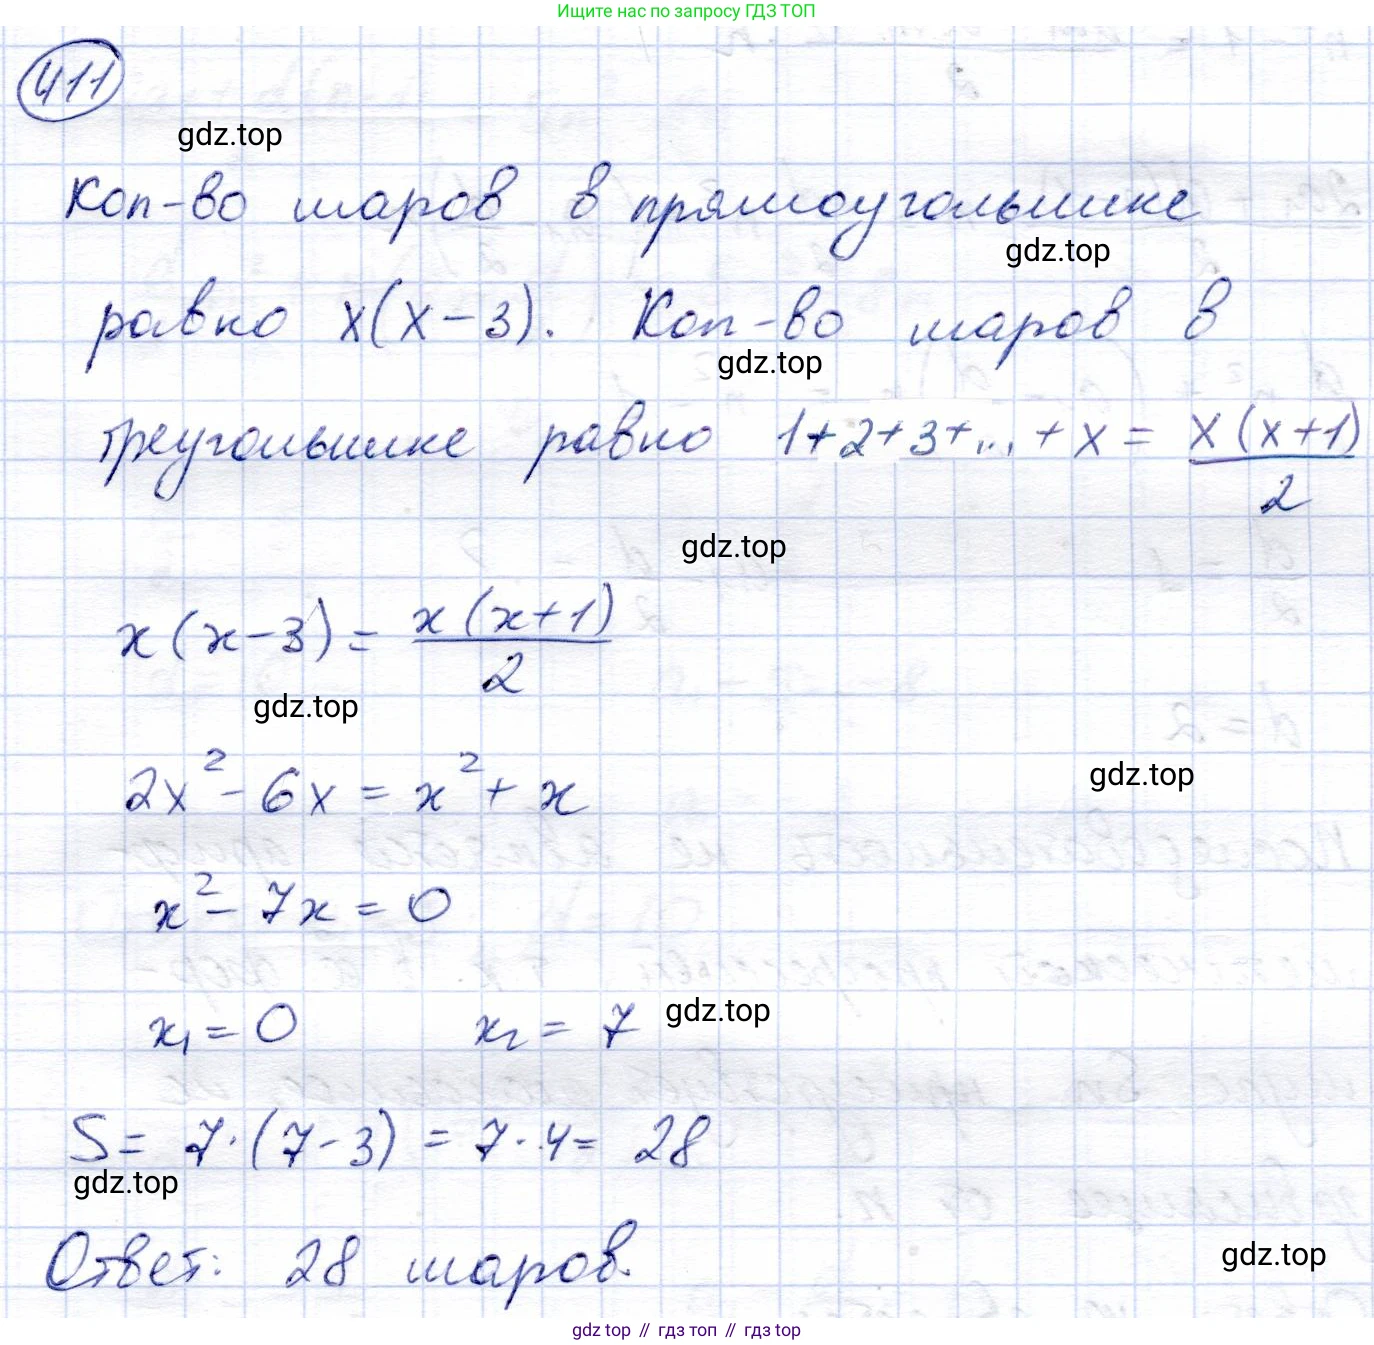 Ищите нас по запросу ГДЗ ТОП
411
gdz.top
Кол-во шаров в прямоугольнике
gdz.top
равно x(x-3). Кол-во шаров в
gdz.top
треугольнике равно 1+2+3+...+x = x(x+1)/2
gdz.top
x(x-3) = x(x+1)/2
gdz.top
2x² - 6x = x² + x
gdz.top
x² - 7x = 0
x₁ = 0 x₂ = 7
gdz.top
S = 7·(7-3) = 7·4 = 28
gdz.top
Ответ: 28 шаров.
gdz.top
gdz top // гдз топ // gdz top